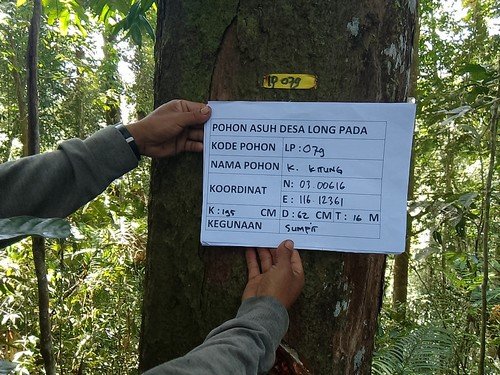 LP 079
POHON ASUH DESA LONG PADA
KODE POHON LP : 079
NAMA POHON K. KITUNG
KOORDINAT N: 03 00616
E: 116 12361
K: 195 CM D: 62 CM T: 16 M
KEGUNAAN SUMPIT